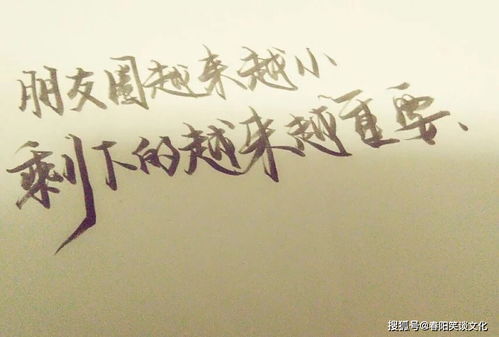 朋友圈越来越小
剩下的越来越重要、
搜狐号@春阳笑谈文化